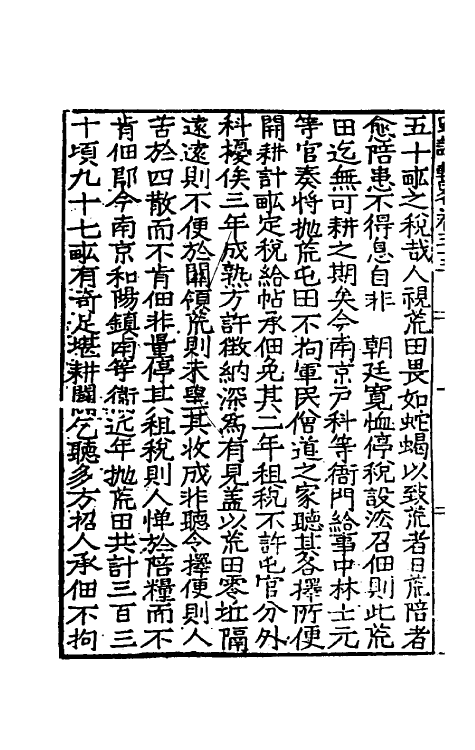 五十畝之稅哉人視荒田畏如蛇蝎以致荒者日荒陪者
愈陪患不得息自非　朝廷寬恤停稅設法召佃則此荒
田迄無可耕之期矣今南京戶科等衙門給事中林士元
等官奏將拋荒屯田不拘軍民僧道之家聽其各擇所便
開耕計畝定稅給帖承佃免其二年租稅不許屯官分外
科擾俟三年成熟方許徵納深為有見蓋以荒田零坵隔
遠遠則不便於開領荒則未舉其收成非聽令擇便則人
苦於四散而不肯佃非量停其租稅則人憚於陪糧而不
肯佃即今南京和陽鎮南等衛近年拋荒田共計三百三
十頃九十七畝有奇足堪耕闢乞聽多方招人承佃不拘